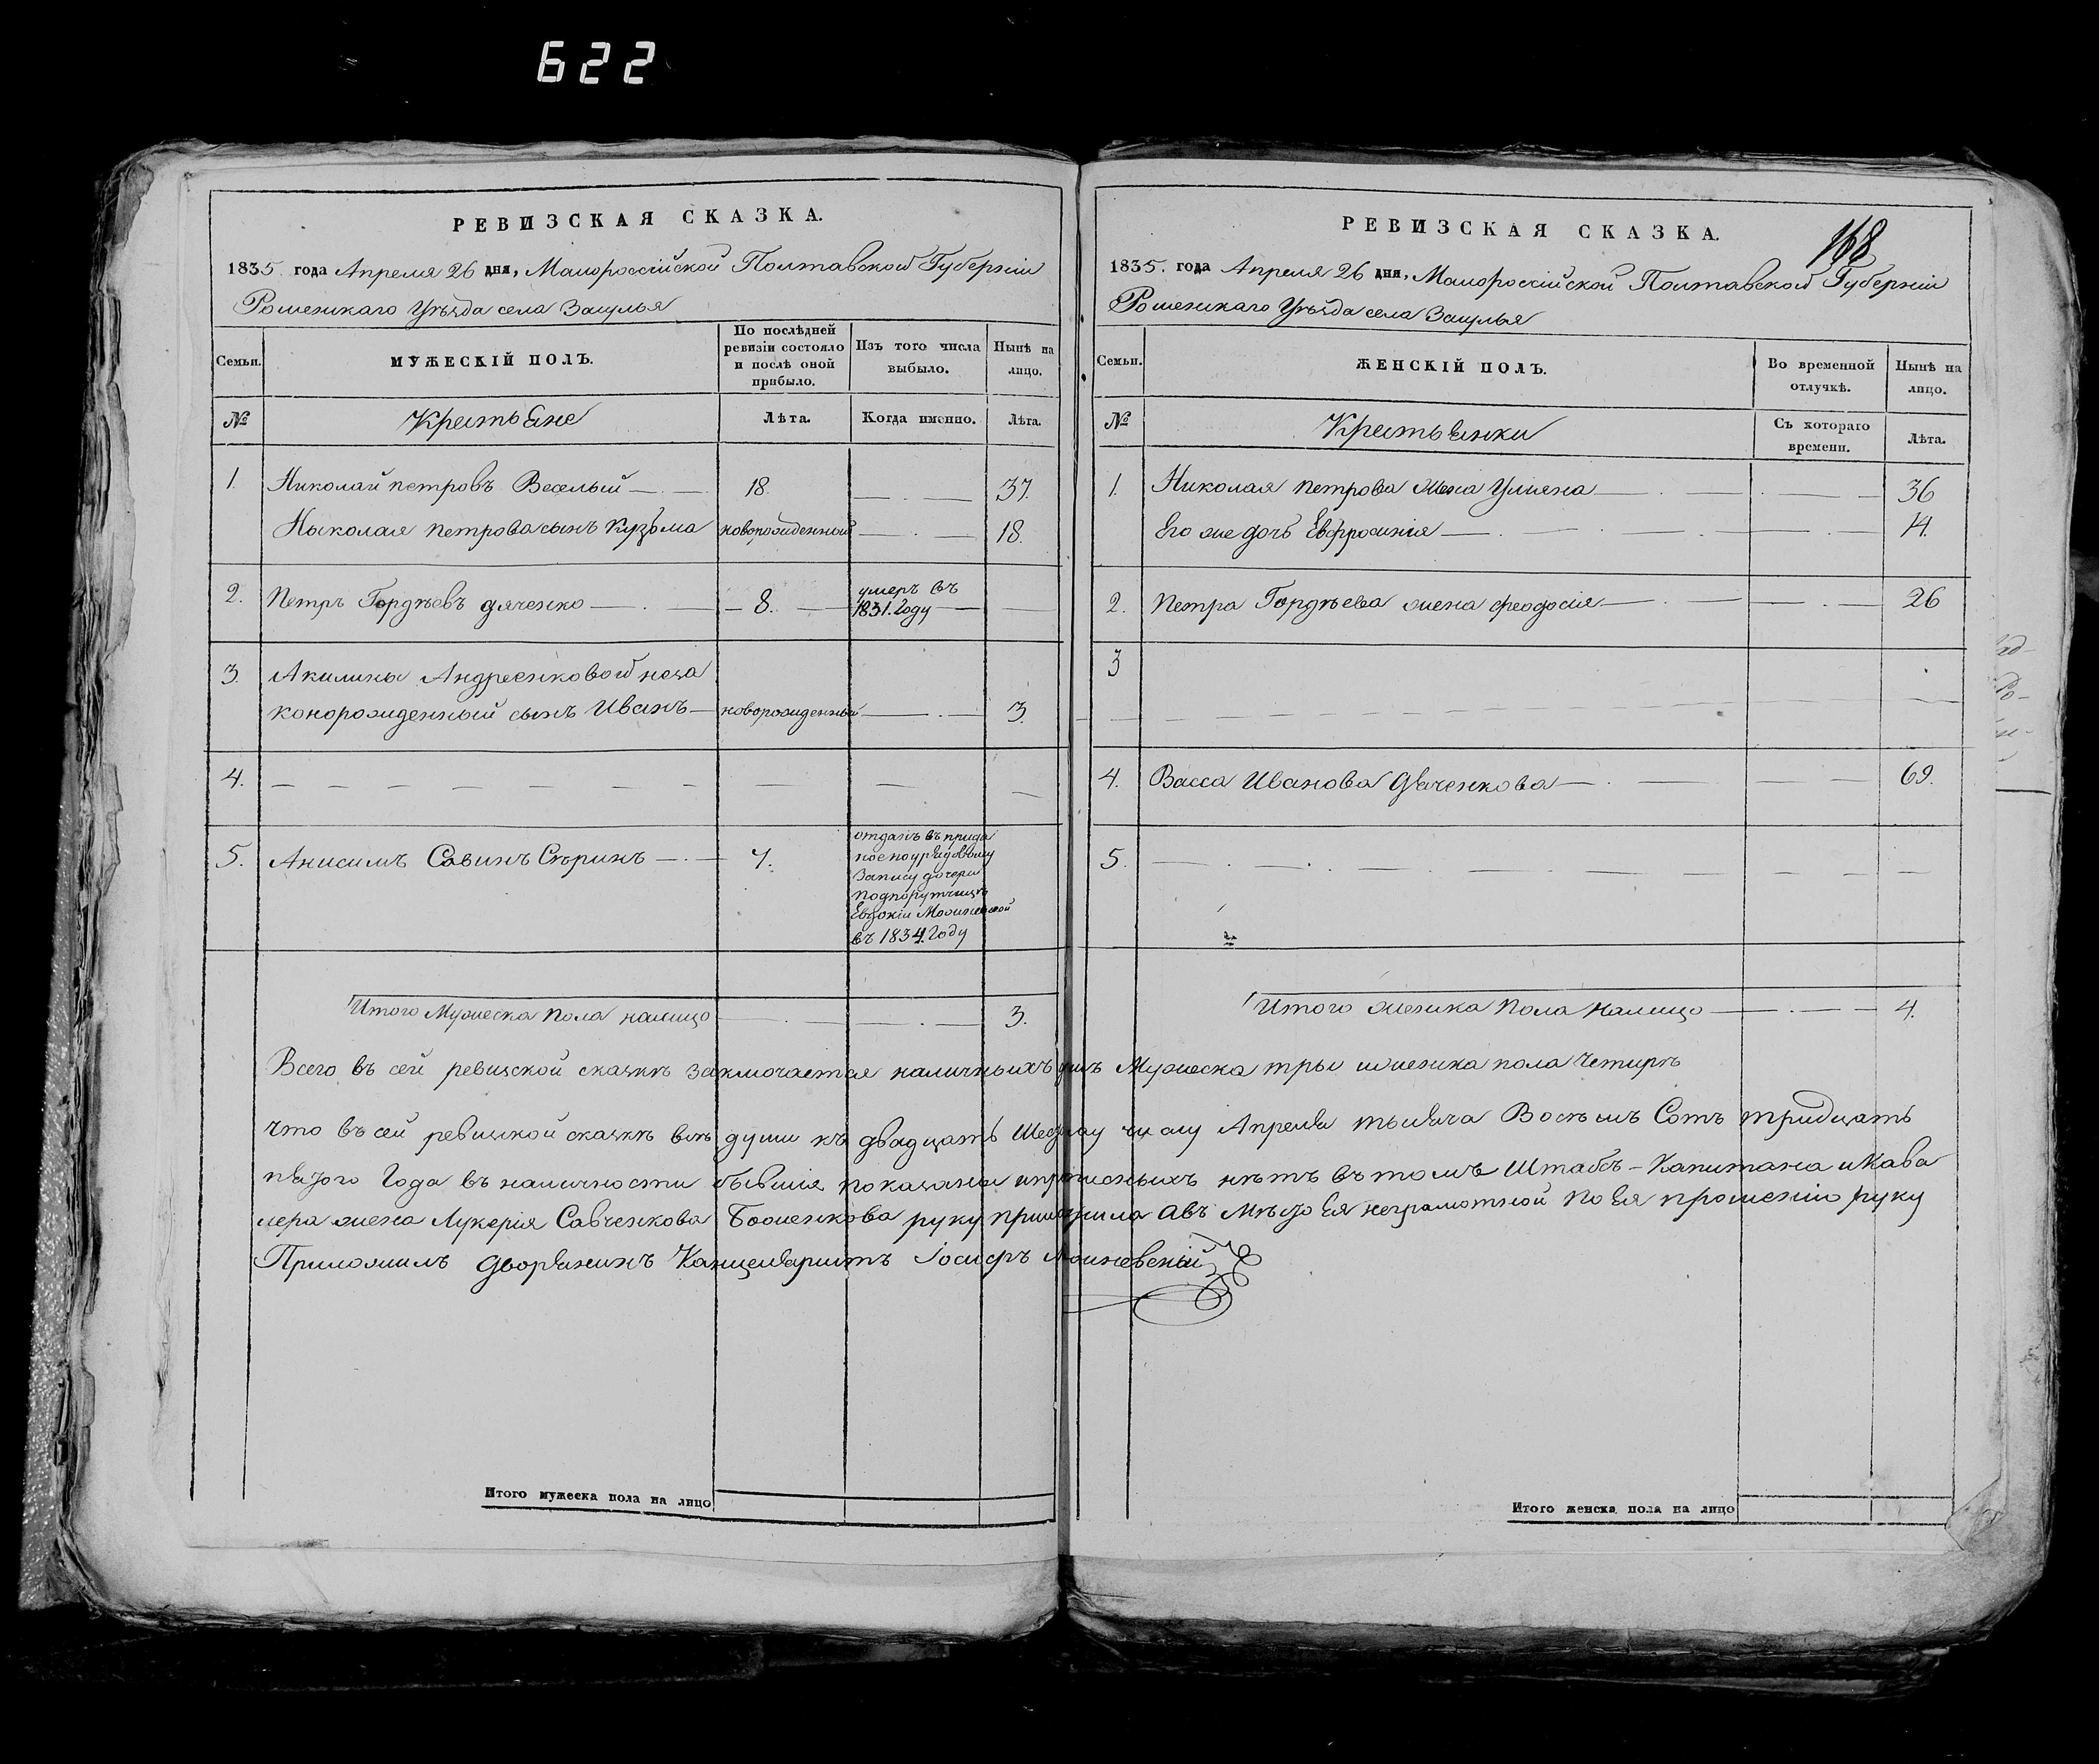 622
РЕВИЗСКАЯ СКАЗКА.
1835. года Апреля 26 дня, Малороссійской Полтавской Губерніи
Роменскаго Уѣзда села Засулья
Семьи.
МУЖЕСКІЙ ПОЛЪ.
По послѣдней ревизіи состояло и послѣ оной прибыло.
Изъ того числа выбыло.
Нынѣ на лицо.
№ Крестьяне Лѣта. Когда именно. Лѣта.
1. Николай петровъ Веселый 18. 37.
Ныколая петрова сынъ Кузьма новорожденный 18.
2. Петръ Гордѣевъ дяченко 8. умеръ въ 1831. Году
3. Акилины Андреенковой неза
конорожденный сынъ Иванъ новорожденный 3.
4.
5. Анисимъ Савинъ Сѣрикъ 7.
отданъ въ прида
ное по урядовому
Запису дочери
подпорутчицѣ
Евдокіи
въ 1834. Году
Итого Мужеска Пола налицо 3.
РЕВИЗСКАЯ СКАЗКА.
168
1835. года Апреля 26 дня, Малороссійской Полтавской Губерніи
Роменскаго Уѣзда села Засулья
Семьи.
ЖЕНСКІЙ ПОЛЪ.
Во временной отлучкѣ.
Нынѣ на лицо.
№ Крестьянки Съ котораго времени. Лѣта.
1. Николая петрова жена Уліяна 36
Его же дочь Евфросинія 14.
2. Петра Гордѣева жена феодосія 26
3
4. Васса Иванова Дяченкова 69.
5.
Итого женска Пола налицо 4.
Всего въ сей ревизской сказкѣ заключается наличныхъ душъ Мужеска три и женска пола Четирѣ
что въ сей ревизкой сказкѣ всѣ души къ двадцать Шестому числу Апреля тысяча Восѣмъ Сотъ тридцать
пятого Года въ наличности бывшія показаны и прописныхъ нѣтъ въ томъ Штабсъ-Капитана и Кава
лера жена Лукерія Савченкова руку приложила а въ Мѣсто Ея неграмотной по Ея прошенію руку
Приложилъ дворянинъ Канцеляристъ Іосифъ
Итого мужеска пола на лицо
Итого женска пола на лицо